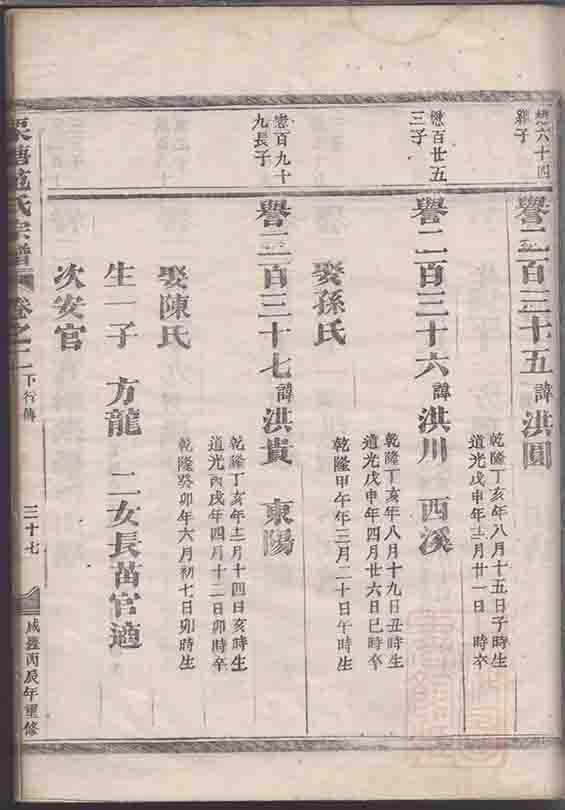 懋六十四
嗣子
譽二百三十五 諱洪圓
乾隆丁亥年八月十五日子時生
道光戊申年三月廿一日 時卒
懋百廿五
三子
譽二百三十六 諱洪川 西溪
乾隆丁亥年八月十九日丑時生
道光戊申年四月廿六日巳時卒
娶孫氏
乾隆甲午年三月二十日午時生
懋百九十
九長子
譽二百三十七 諱洪貴 東陽
乾隆丁亥年十二月十四日亥時生
道光丙戌年四月十二日卯時卒
娶陳氏
乾隆癸卯年六月初七日卯時生
生一子 方龍 二女長苗官適
次安官
氏宗譜 卷之二 下行傳 三十七 咸豐丙辰年重修